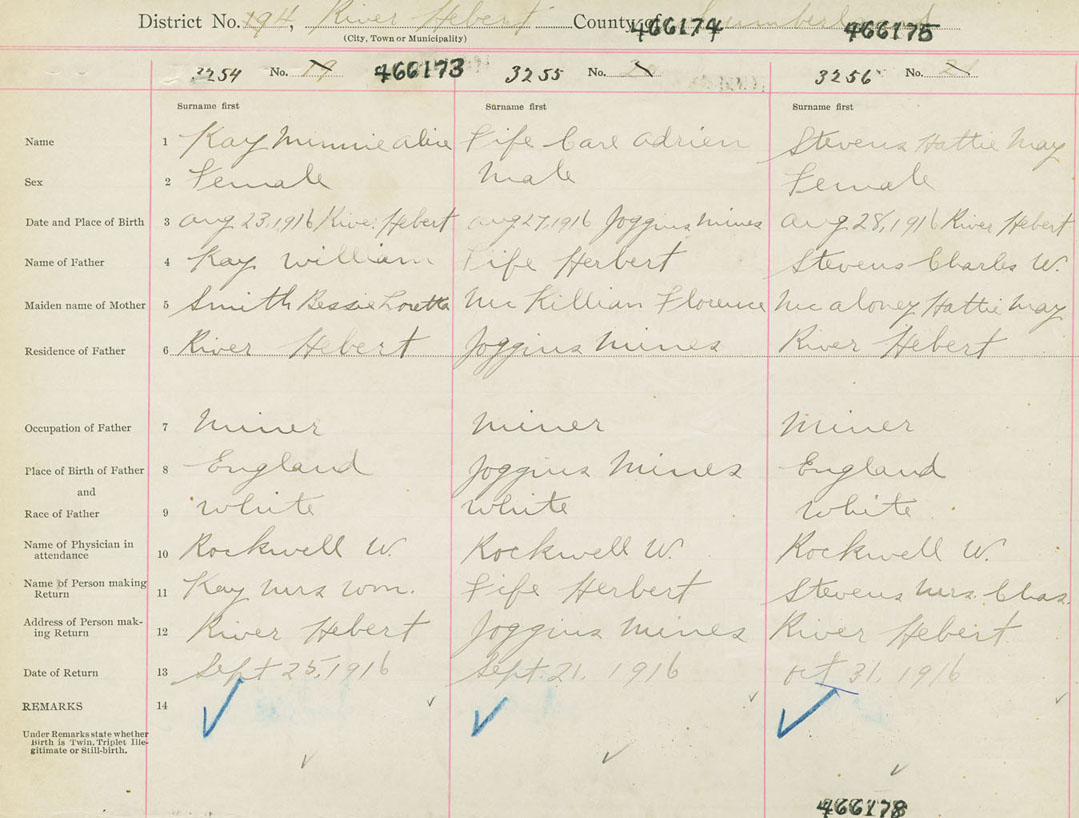 District No. 194, River Hebert County of Cumberland
(City, Town or Municipality)
466174 466175
3254 No. 19 466173 3255 No. 20 3256 No. 21
Surname first Surname first Surname first
Name 1 Kay Minnie Alice Fife Carl Adrien Stevens Hattie May
Sex 2 Female Male Female
Date and Place of Birth 3 Aug 23, 1916 River Hebert Aug 27, 1916 Joggins Mines Aug 28, 1916 River Hebert
Name of Father 4 Kay William Fife Herbert Stevens Charles W.
Maiden name of Mother 5 Smith Bessie Loretta McKillian Florence McAloney Hattie May
Residence of Father 6 River Hebert Joggins Mines River Hebert
Occupation of Father 7 Miner Miner Miner
Place of Birth of Father 8 England Joggins Mines England
and
Race of Father 9 White White White
Name of Physician in
attendance 10 Rockwell W. Rockwell W. Rockwell W.
Name of Person making
Return 11 Kay Mrs Wm. Fife Herbert Stevens Mrs. Chas.
Address of Person mak-
ing Return 12 River Hebert Joggins Mines River Hebert
Date of Return 13 Sept 25, 1916 Sept. 21, 1916 Oct 31, 1916
REMARKS 14
Under Remarks state whether
Birth is Twin, Triplet Ille-
gitimate or Still-birth.
466178